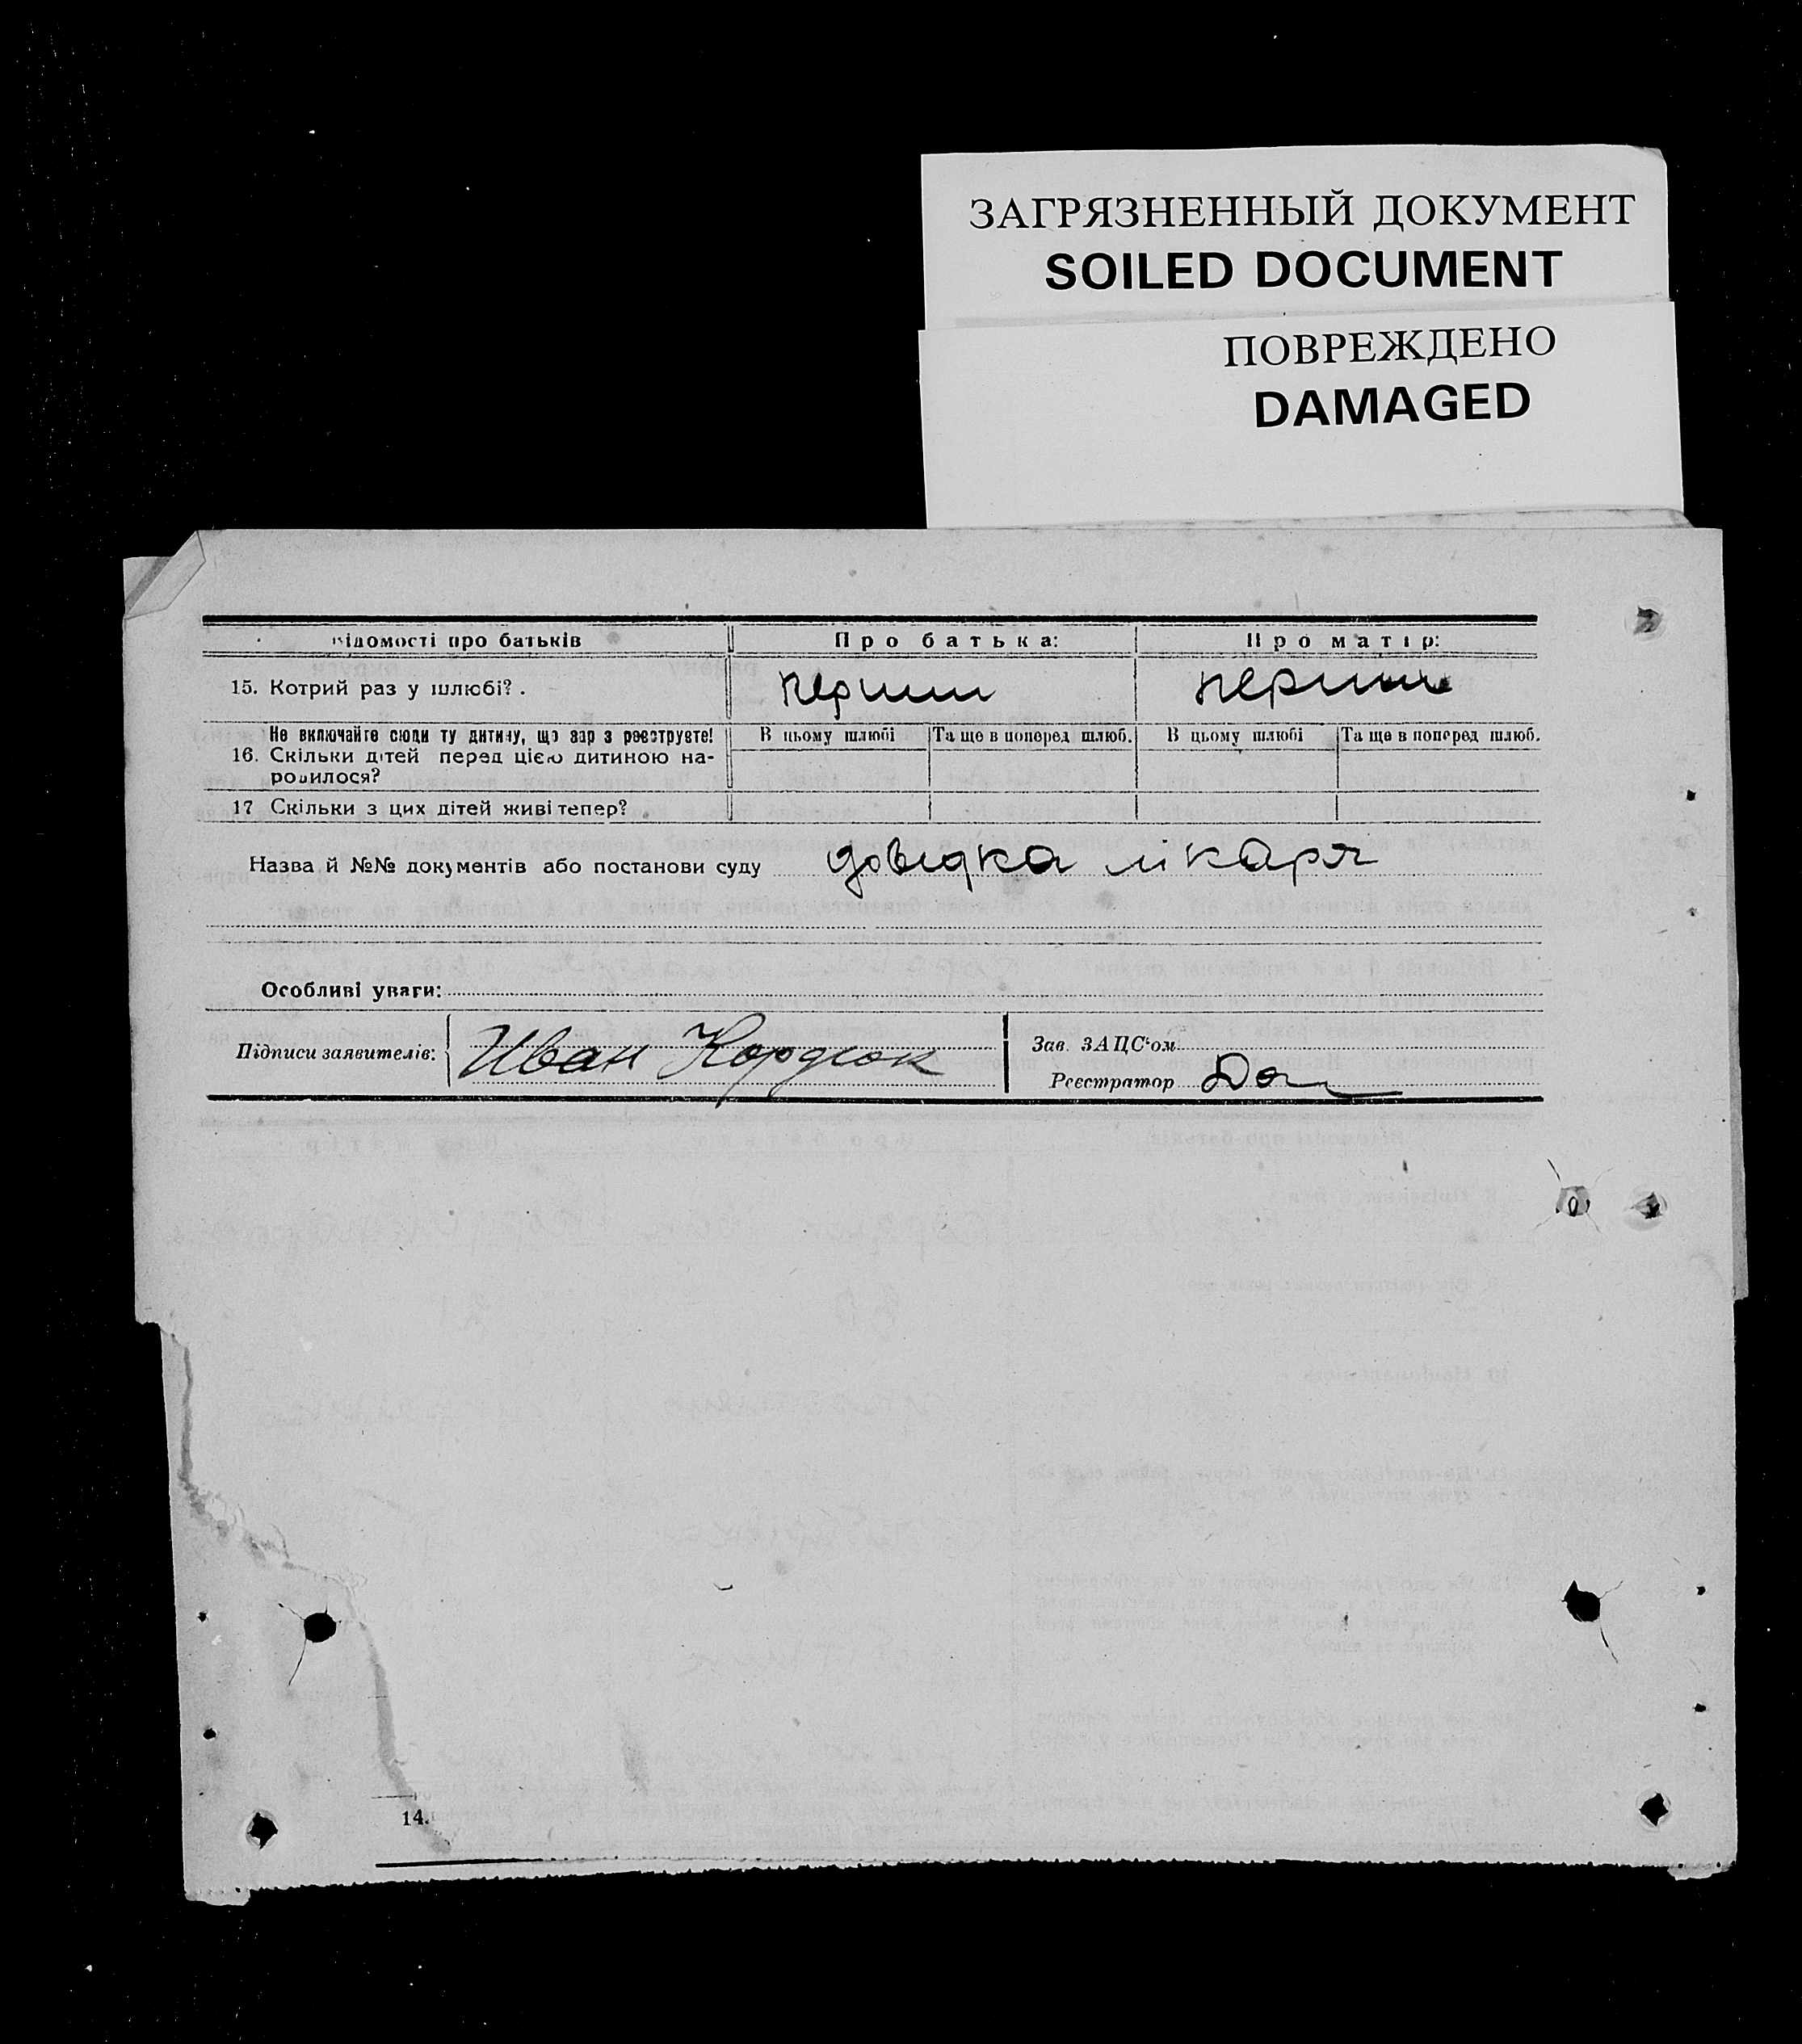 ЗАГРЯЗНЕННЫЙ ДОКУМЕНТ
SOILED DOCUMENT
ПОВРЕЖДЕНО
DAMAGED
Відомості про батьків Про батька: Про матір:
15. Котрий раз у шлюбі? . перший перший
Не включайте сюди ту дитину, що зараз реєструєте! В цьому шлюбі Та ще в поперед шлюб. В цьому шлюбі Та ще в поперед шлюб.
16. Скільки дітей перед цією дитиною на-
родилося?
17 Скільки з цих дітей живі тепер?
Назва й №№ документів або постанови суду довідка лікаря
Особливі уваги:
Підписи заявителів: Иван Кордюк Зав. ЗАЦС'ом
Реєстратор
14.